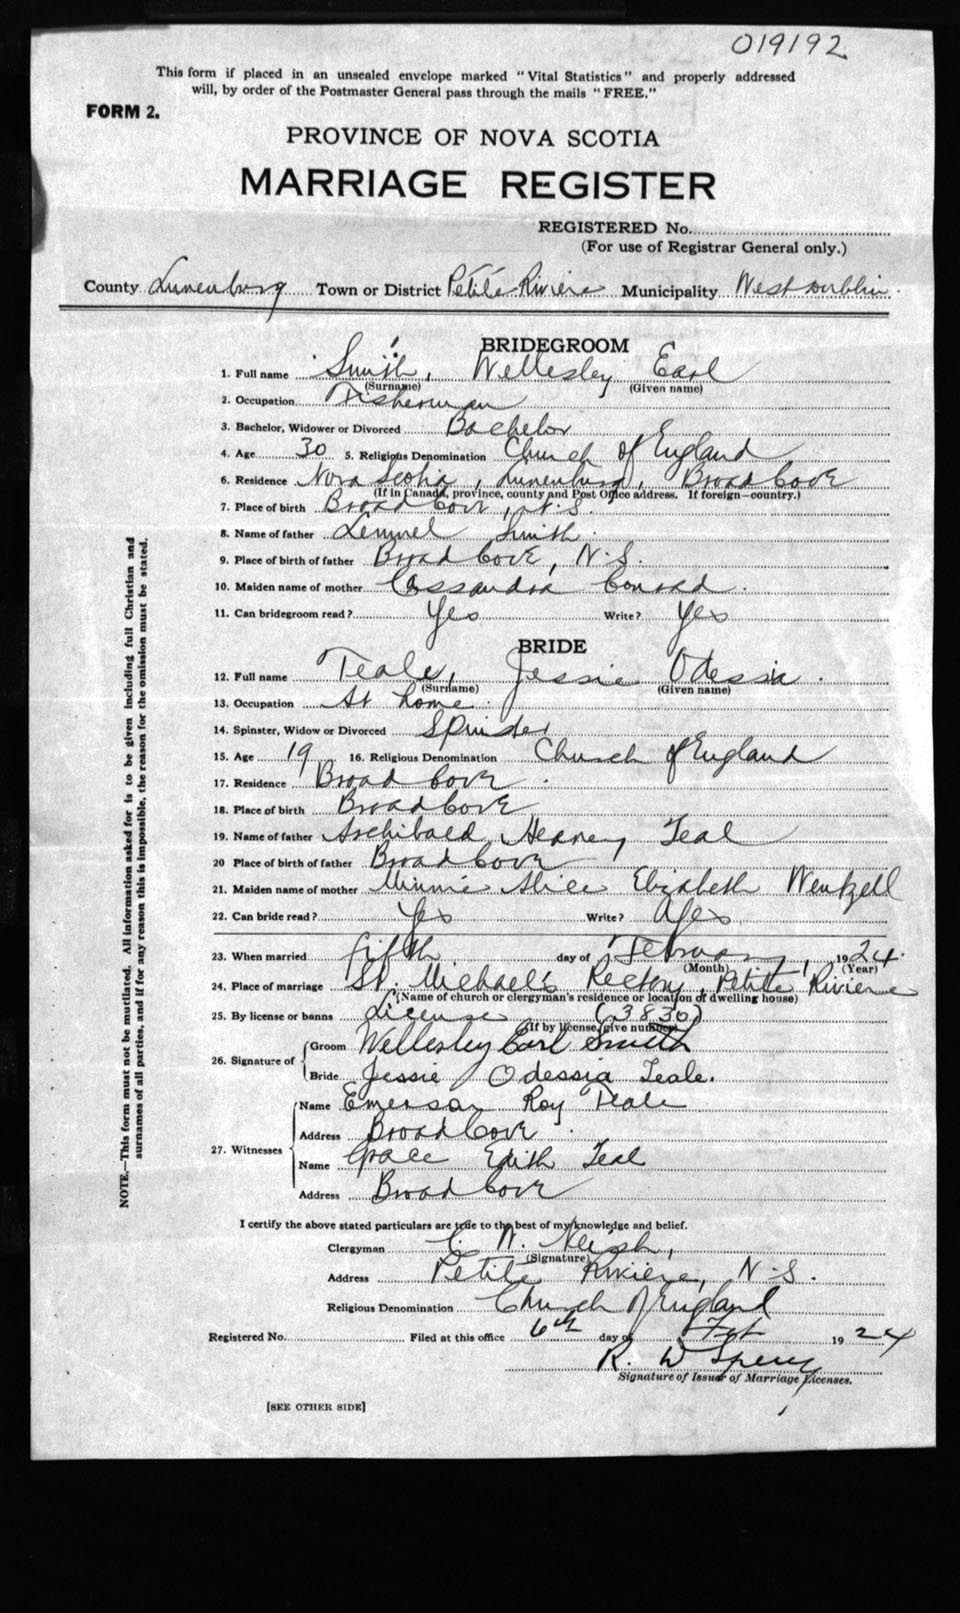 019192
This form if placed in an unsealed envelope marked "Vital Statistics" and properly addressed
will, by order of the Postmaster General pass through the mails "FREE."
FORM 2.
PROVINCE OF NOVA SCOTIA
MARRIAGE REGISTER
REGISTERED No.
(For use of Registrar General only.)
County Lunenburg Town or District Petite Riviere Municipality West Dublin.
BRIDEGROOM
1. Full name Smith, Wellesley Earl
(Surname) (Given name)
2. Occupation Fisherman
3. Bachelor, Widower or Divorced Bachelor
4. Age 30 5. Religious Denomination Church of England
6. Residence Nova Scotia, Lunenburg, Broad Cove
(If in Canada, province, county and Post Office address. If foreign—country.)
7. Place of birth Broad Cove, N.S.
8. Name of father Lemuel Smith
9. Place of birth of father Broad Cove, N.S.
10. Maiden name of mother Cassandra Conrad.
11. Can bridegroom read? Yes Write? Yes
BRIDE
12. Full name Teale, Jessie Odessia.
(Surname) (Given name)
13. Occupation At home.
14. Spinster, Widow or Divorced Spinster
15. Age 19 16. Religious Denomination Church of England
17. Residence Broad Cove.
18. Place of birth Broad Cove
19. Name of father Archibald Heaney Teal
20 Place of birth of father Broad Cove
21. Maiden name of mother Minnie Alice Elizabeth Wentzell
22. Can bride read? Yes Write? Yes
23. When married fifth day of February, 1924.
(Month) (Year)
24. Place of marriage St. Michael's Rectory, Petite Riviere
(Name of church or clergyman's residence or location of dwelling house)
25. By license or banns License (3830)
(If by license, give number)
26. Signature of Groom Wellesley Earl Smith
Bride Jessie Odessia Teale.
27. Witnesses Name Emerson Roy Teale
Address Broad Cove.
Name Grace Edith Teal
Address Broad Cove
I certify the above stated particulars are true to the best of my knowledge and belief.
Clergyman C. W. Neish,
(Signature)
Address Petite Riviere, N.S.
Religious Denomination Church of England
Registered No. Filed at this office 6th day of Feb 1924
R. W Sperry
Signature of Issuer of Marriage Licenses.
[SEE OTHER SIDE]
NOTE.—This form must not be mutilated. All information asked for is to be given including full Christian and
surnames of all parties, and if for any reason this is impossible, the reason for the omission must be stated.